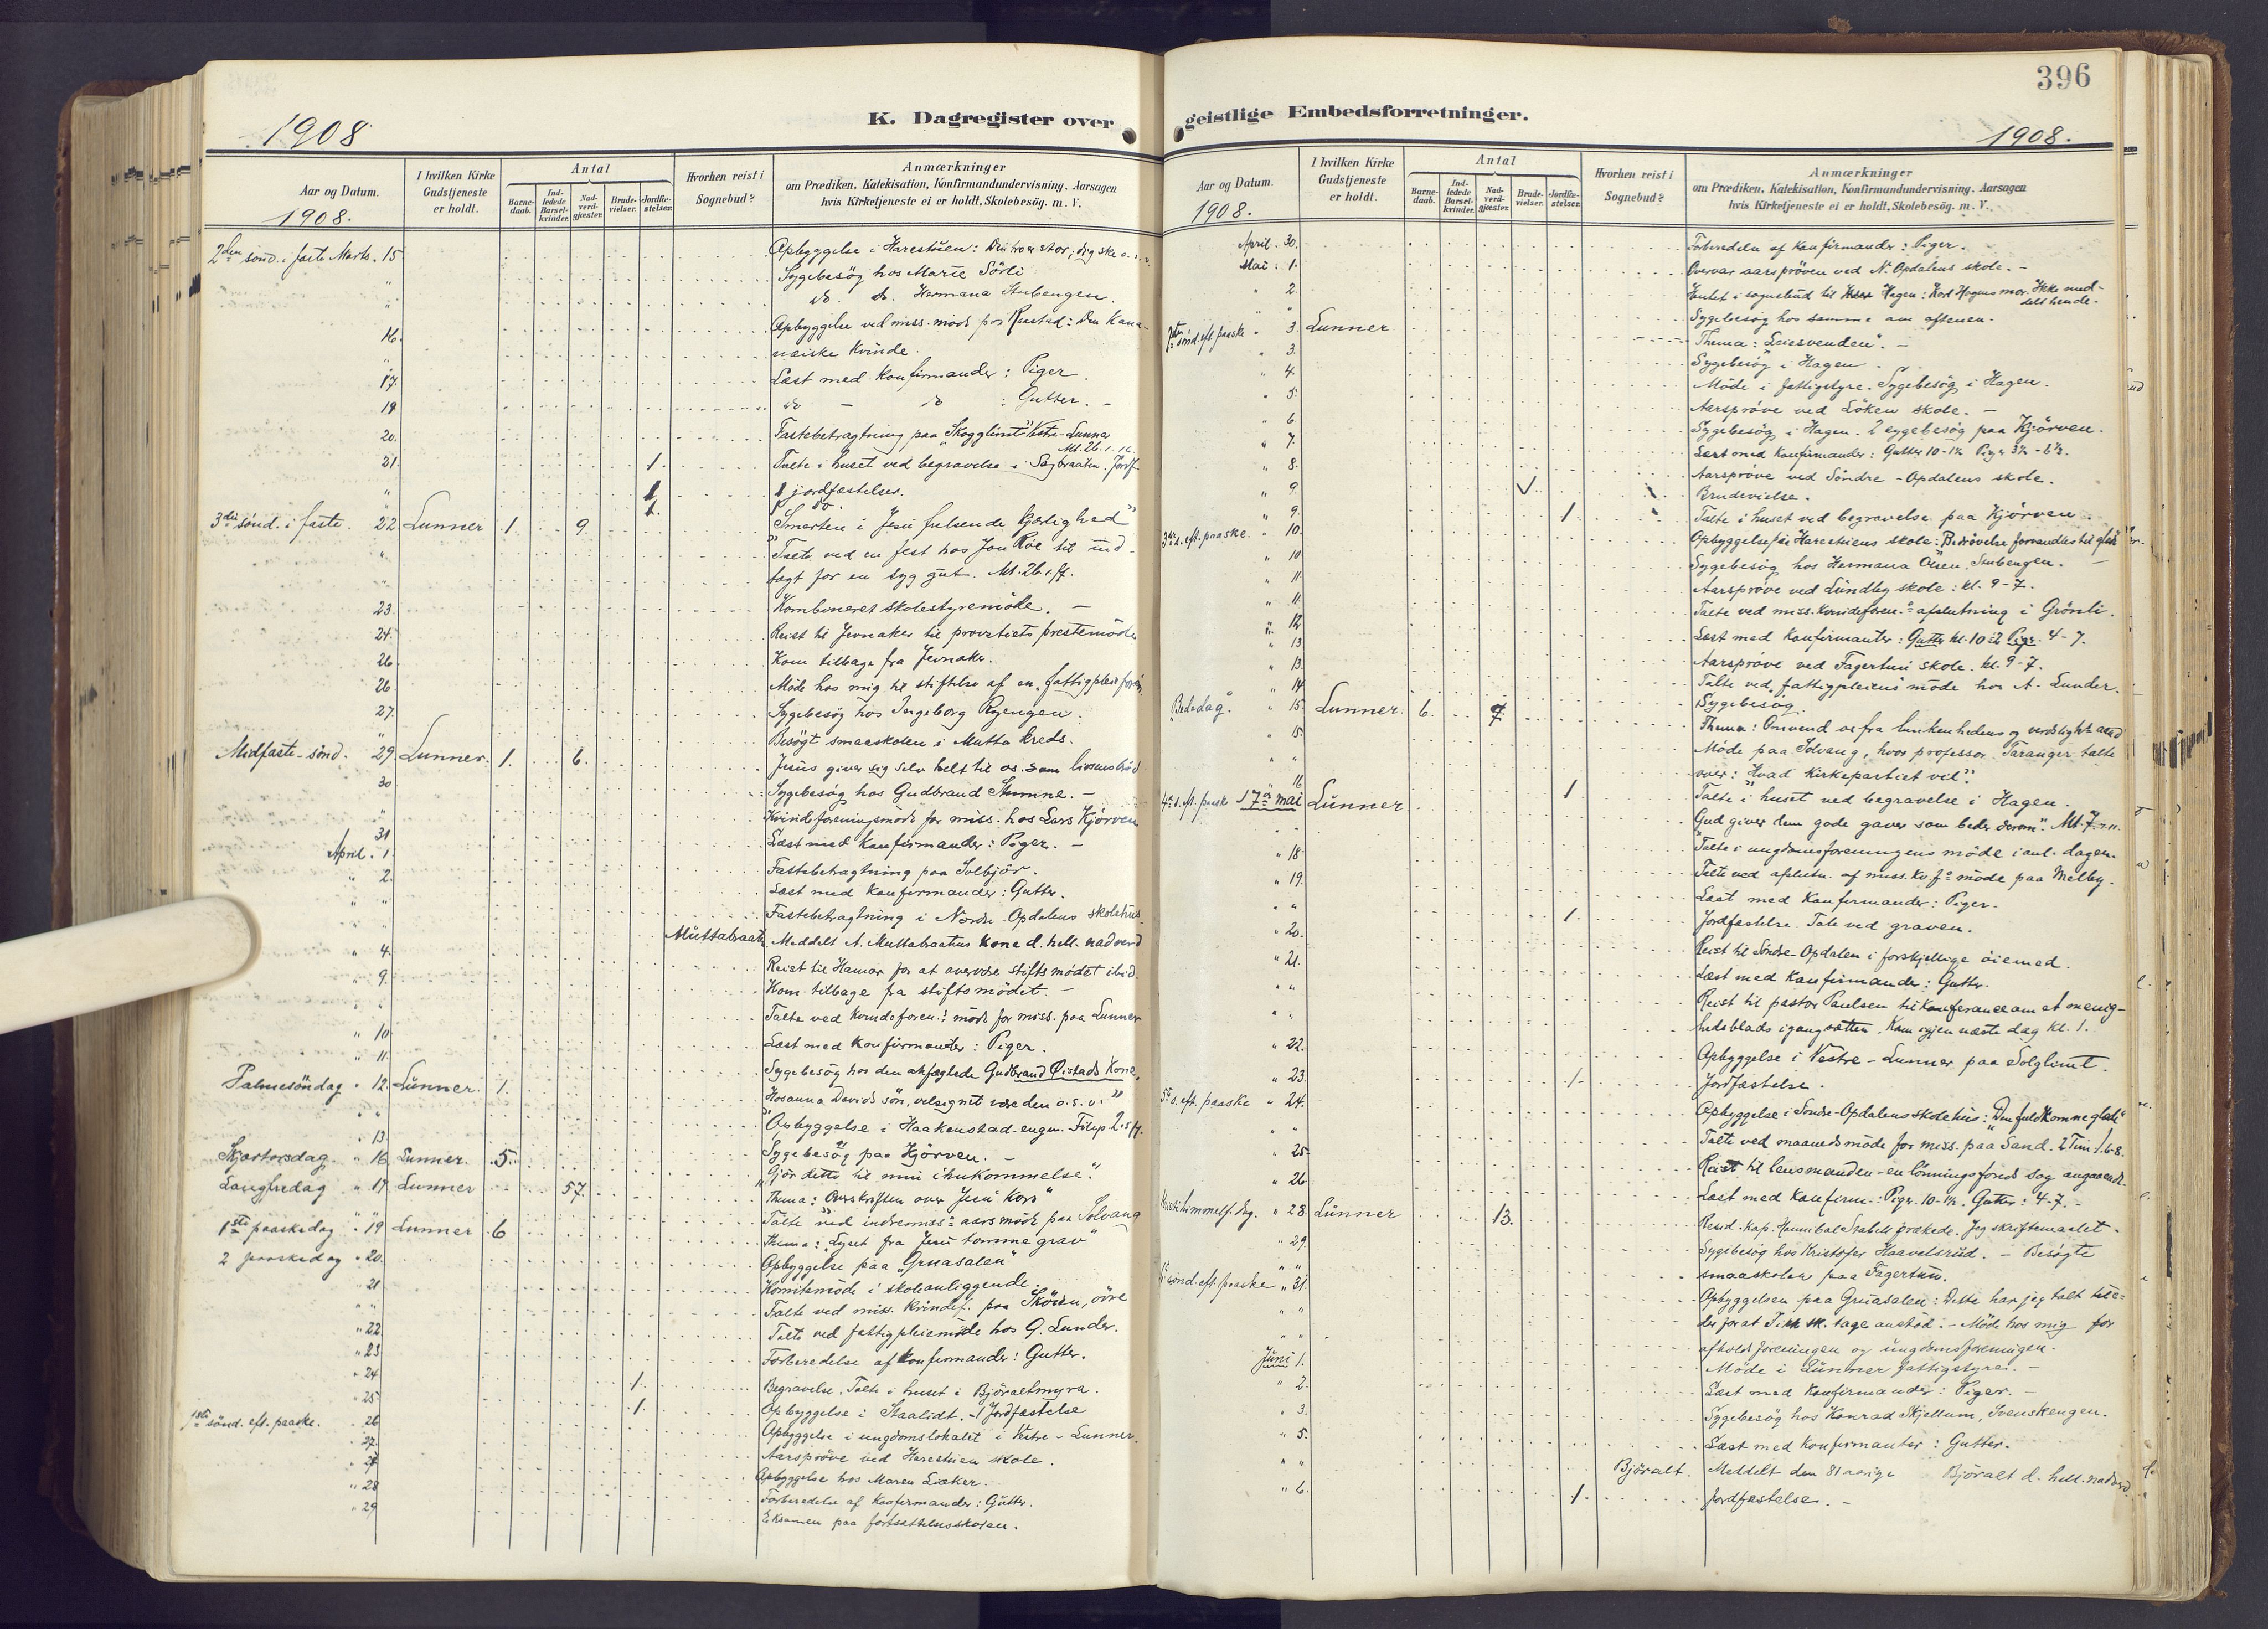 396
K. Dagregister over
geistlige Embedsforretninger.
1908
Aar og Datum.
1908.
I hvilken Kirke
Gudstjeneste
er holdt.
Antal
Barne-
daab.
Ind-
ledede
Barsel-
kvinder.
Nad-
verd-
gjæster.
Brude-
vielser.
Jordfæ-
stelser.
Hvorhen reist i
Sognebud?
Anmærkninger
om Prædiken, Katekisation, Konfirmandundervisning, Aarsagen
hvis Kirketjeneste ei er holdt, Skolebesög, m. V.
2den sönd. i faste Marts. 15 Opbyggelse i Harestuen: Din tro er stor; dig ske
" Sygebesög hos Marie Sörli
" do. do. Hermana Stubengen.
16. Opbyggelse ved miss. möde paa Rustad: Den kana-
næiske kvinde.
17. Læst med konfirmander: Piger
19. do - do : Gutter. -
20. Fastebetragtning paa "Skogglimt" Vestre-Lunner
Mt. 26. 1-16.
21. 1. Talte i huset ved begravelse i Sagbraaten. Jordf.
" 1 1 jordfæstelser.
1. 1 do.
3die sönd. i faste. 22 Lunner 1. 9 "Smerten i Jesu frelsende kjærlighed"
" Talte ved en fest hos Jon Roe til ind-
tægt for en syg gut. Mt. 26. 1 ff.
23. Kombineret skolestyremöde. -
24. Reist til Jevnaker til provstiets prestemöde
26. Kom tilbage fra Jevnaker.
26. Möde hos mig til stiftelse af en fattigpleie foren.
27. Sygebesög hos Ingeborg Ryengen.
" Besögt smaaskolen i Mutta kreds.
Midfaste-sönd. 29. Lunner. 1. 6. Jesus giver sig selv helt til os som livsens bröd
30 Sygebesög hos Gudbrand Stumne. -
" Kvindeforeningsmöde for miss. hos Lars Kjörven
31 Læst med konfirmander: Piger. -
April. 1. Fastebetragtning paa Solbjör.
" 2. Læst med konfirmander: Gutter.
" " Fastebetragtning i Nordre Opdalens skolehus.
" Muttabraat. Meddelt A. Muttabraatens kone d. hell. nadverd
" 4. Reist til Hamar for at overvære stiftsmödet ibid.
" 9. Kom tilbage fra stiftsmödet. -
" " Talte ved kvindeforen.s möde for miss. paa Lunner
" 10 Læst med konfirmander: Piger.
" 11. Sygebesög hos den anfægtede Gudbrand Öistads kone.
Palmesöndag " 12. Lunner. 1. Hosanna Davids sön, velsignet være den o.s.v."
" " Opbyggelse i Haakenstad-engen. Filip 2. 5 ff.
" 13. Sygebesög paa Kjörven. -
Skjærtorsdag. " 16 Lunner. 5. "Gjör dette til min ihukommelse."
Langfredag " 17 Lunner 57. Thema: Overskriften over Jesu Kors"
" " Talte ved indremiss. aarsmöde paa Solvang
1ste paaskedag " 19 Lunner 6 Thema: "Lyset fra Jesu tomme grav"
2 paaskedag " 20. Opbyggelse paa "Gruasalen"
" 21 Komitemöde i skoleanliggende.
" " Talte ved miss. kvindef. paa Skösen, övre
" 22 Talte ved fattigpleiemöde hos G. Lunder.
" 23 Forberedelse af konfirmander: Gutter.
" 24 1. Begravelse. Talte i huset i Björaltmyra.
" 25 1. Opbyggelse i Staalidt. - 1 Jordfæstelse
1ste sönd. eft. paaske. " 26 Opbyggelse i ungdomslokalet i Vestre-Lunner.
" 27. Aarspröve ved Harestuen skole.
" 27 Opbyggelse hos Maren Læker.
" 28 Forberedelse af konfirmander: Gutter.
" 29 Eksamen paa fortsættelsesskolen.
1908.
Aar og Datum.
1908.
I hvilken Kirke
Gudstjeneste
er holdt.
Antal
Barne-
daab.
Ind-
ledede
Barsel-
kvinder.
Nad-
verd-
gjæster.
Brude-
vielser.
Jordfæ-
stelser.
Hvorhen reist i
Sognebud?
Anmærkninger
om Prædiken, Katekisation, Konfirmandundervisning, Aarsagen
hvis Kirketjeneste ei er holdt, Skolebesög, m. V.
April. 30. Forberedelse af konfirmander: Piger.
Mai. 1. Overvar aarspröven ved N. Opdalens skole. -
" 2. Hentet i sognebud til Hagen: Karl Hagens mor. Ikke med-
delt hende.
" " Sygebesög hos samme om aftenen.
sönd. eft. paaske " 3. Lunner Thema: "Leiesvenden". -
" 3. Sygebesög i Hagen.
" 4. Möde i fattigstyre. Sygebesög i Hagen.
" 5. Aarspröve ved Löken skole. -
" 6 Sygebesög i Hagen. 2 sygebesög paa Kjörven.
" 7. Læst med konfirmander: Gutter 10-1½ Piger 3½-6½.
" 8. Aarspröve ved Söndre-Opdalens skole.
" 9. Brudevielse.
" 9. 1 Talte i huset ved begravelse paa Kjörven.
3die s. eft. paaske. " 10. Opbyggelse i Harestuens skole: Bedrövelse forvandles til glæde
" 10 Sygebesög hos Hermana Olsen, Stubengen. -
" 11. Aarspröve ved Lundby skole: kl. 9-7.
" 11. Talte ved miss. kvindeforen.s afslutning i Grönli.
" 12 Læst med konfirmanter: Gutter kl. 10-12 Piger 4-7.
" 13 Aarspröve ved Fagertun skole. kl. 9-7.
" 13. Talte ved fattigpleiens möde hos A. Lunder.
" 14 Sygebesög.
Bededag. " 15. Lunner. 6. 7 Thema: Omvend os fra lunkenhedens og verdslighedens aand
" 15 Möde paa Solvang, hvor professor Taranger talte
" " over: "Hvad Kirkepartiet vil".
16 1 Talte i huset ved begravelse i Hagen.
4de s. eft. paaske 17de mai Lunner Gud giver dem gode gaver som beder derom". Mt. 7. v. 11.
" Talte i ungdomsforeningens möde i anl. dagen.
" 18 Talte ved afslutn. af miss. kv. f. möde paa Melby.
" 19. Læst med konfirmander: Piger.
" " 1. Jordfæstelse. Tale ved graven.
" 20. Reist til Söndre-Opdalen i forskjellige öiemed.
" 21. Læst med konfirmander: Gutter.
" " Reist til pastor Paulsen til konferance om et menig-
" " hedsblads igangsætten. Kom igjen næste dag kl. 1.
" 22. Opbyggelse i Vestre-Lunner paa Solglimt.
" 23. 1 Jordfæstelse.
5te s. eft. paaske " 24. Opbyggelse i Söndre-Opdalens skolehus: "Den fuldkomne glæde"
" " Talte ved maanedsmöde for miss. paa Sand. 2 Tim. 1. 6-8.
" 25 Reist til lensmanden - en lönningsfonds sag angaaende.
" 26 Læst med konfirm.: Piger. 10-1½. Gutter: 4-7. -
Kristi himmelf. dag. " 28. Lunner 13. Resid. kap. Hannibal Stabell prækede. Jeg skriftemaalet.
" 29. Sygebesög hos Kristofer Haavelsrud. - Besögte
" " smaaskolen paa Fagertun.
sönd. eft. paaske " 31. Opbyggelsen paa Gruasalen: Dette har jeg talt til e-
" " der forat I ikke sk. tage anstöd. - Möde hos mig for
" " afholdsforeningen og ungdomsforeningen.
Juni 1. Möde i Lunner fattigstyre. -
" 2. Læst med konfirmander: Piger. -
" 3. Sygebesög hos Konrad Skjellum, Svenskengen.
" 5. Læst med konfirmanter: Gutter.
" " Björalt. Meddelt den 81 aarige Björalt d. hell. nadverd.
" 6. 1. Jordfæstelse. -